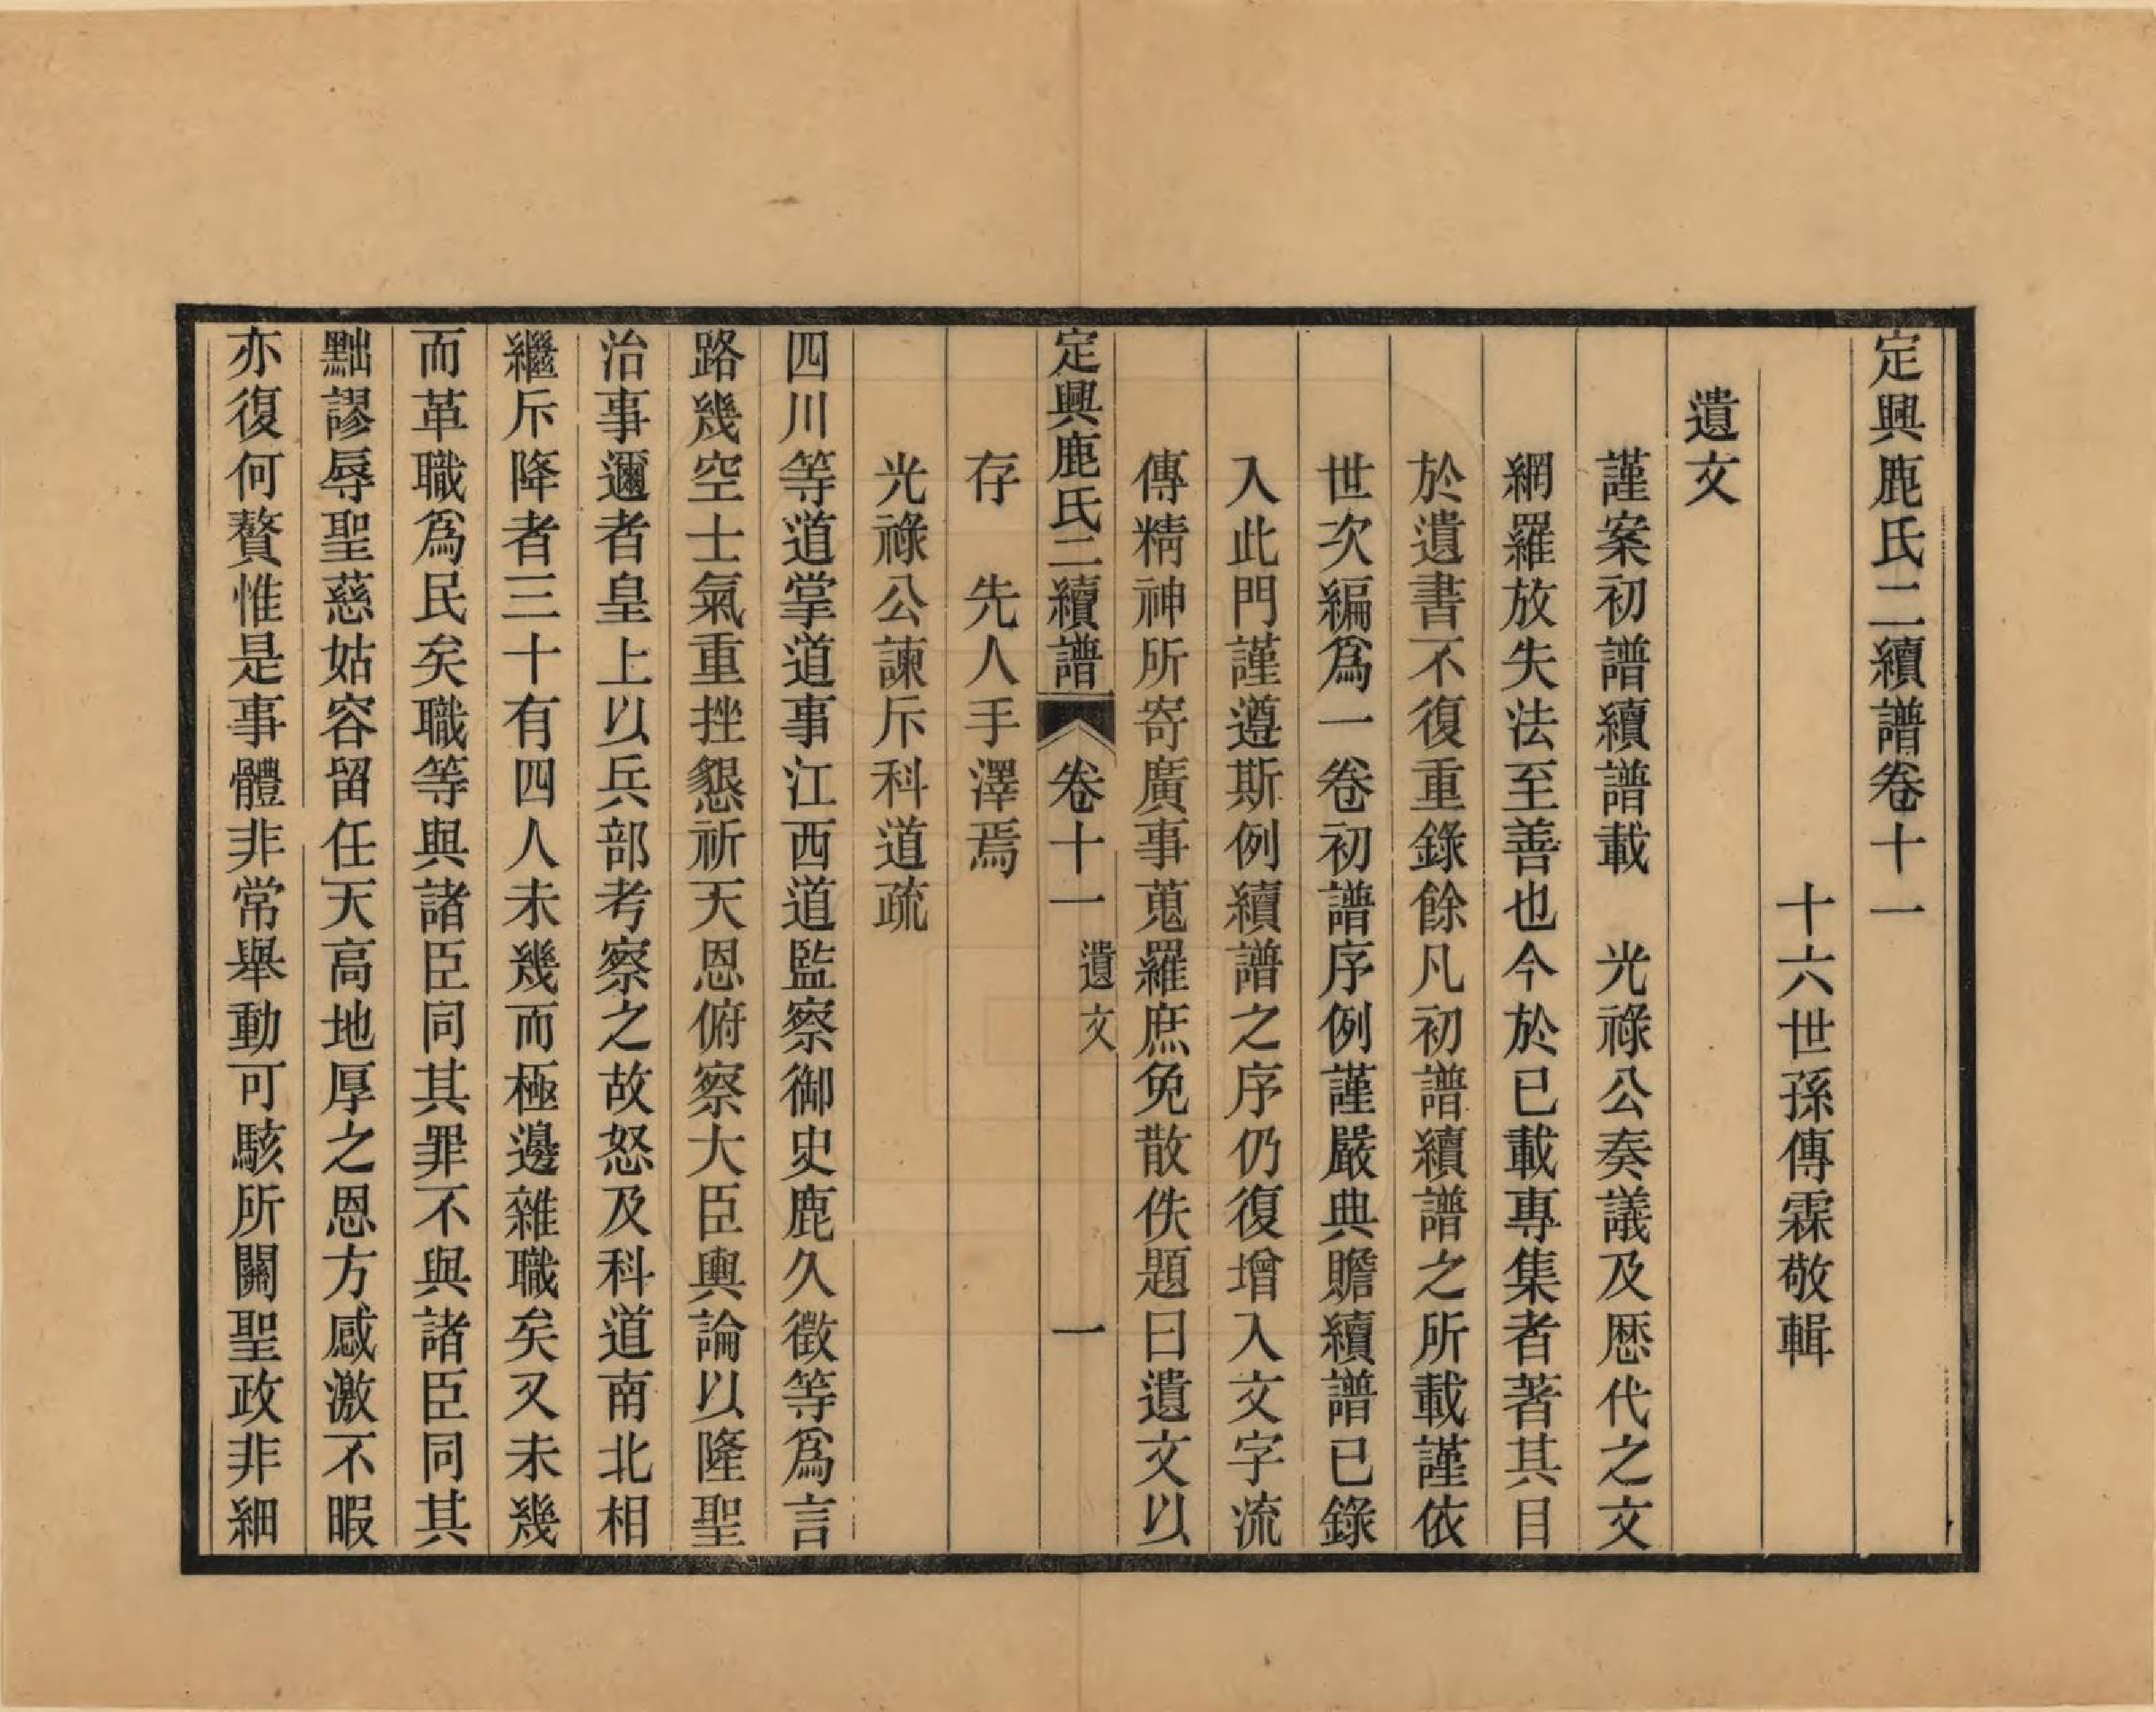 定興鹿氏二續譜卷十一
十六世孫傳霖敬輯
遺文
謹案初譜續譜載　光祿公奏議及歷代之文
網羅放失法至善也今於已載專集者著其目
於遺書不復重錄餘凡初譜續譜之所載謹依
世次編爲一卷初譜序例謹嚴典贍續譜已錄
入此門謹遵斯例續譜之序仍復增入文字流
傳精神所寄廣事蒐羅庶免散佚題曰遺文以
定興鹿氏二續譜　卷十一　遺文　一
存　先人手澤焉
光祿公諫斥科道疏
四川等道掌道事江西道監察御史鹿久徵等爲言
路幾空士氣重挫懇祈天恩俯察大臣輿論以隆聖
治事邇者皇上以兵部考察之故怒及科道南北相
繼斥降者三十有四人未幾而極邊雜職矣又未幾
而革職爲民矣職等與諸臣同其罪不與諸臣同其
黜謬辱聖慈姑容留任天高地厚之恩方感激不暇
亦復何贅惟是事體非常舉動可駭所關聖政非細